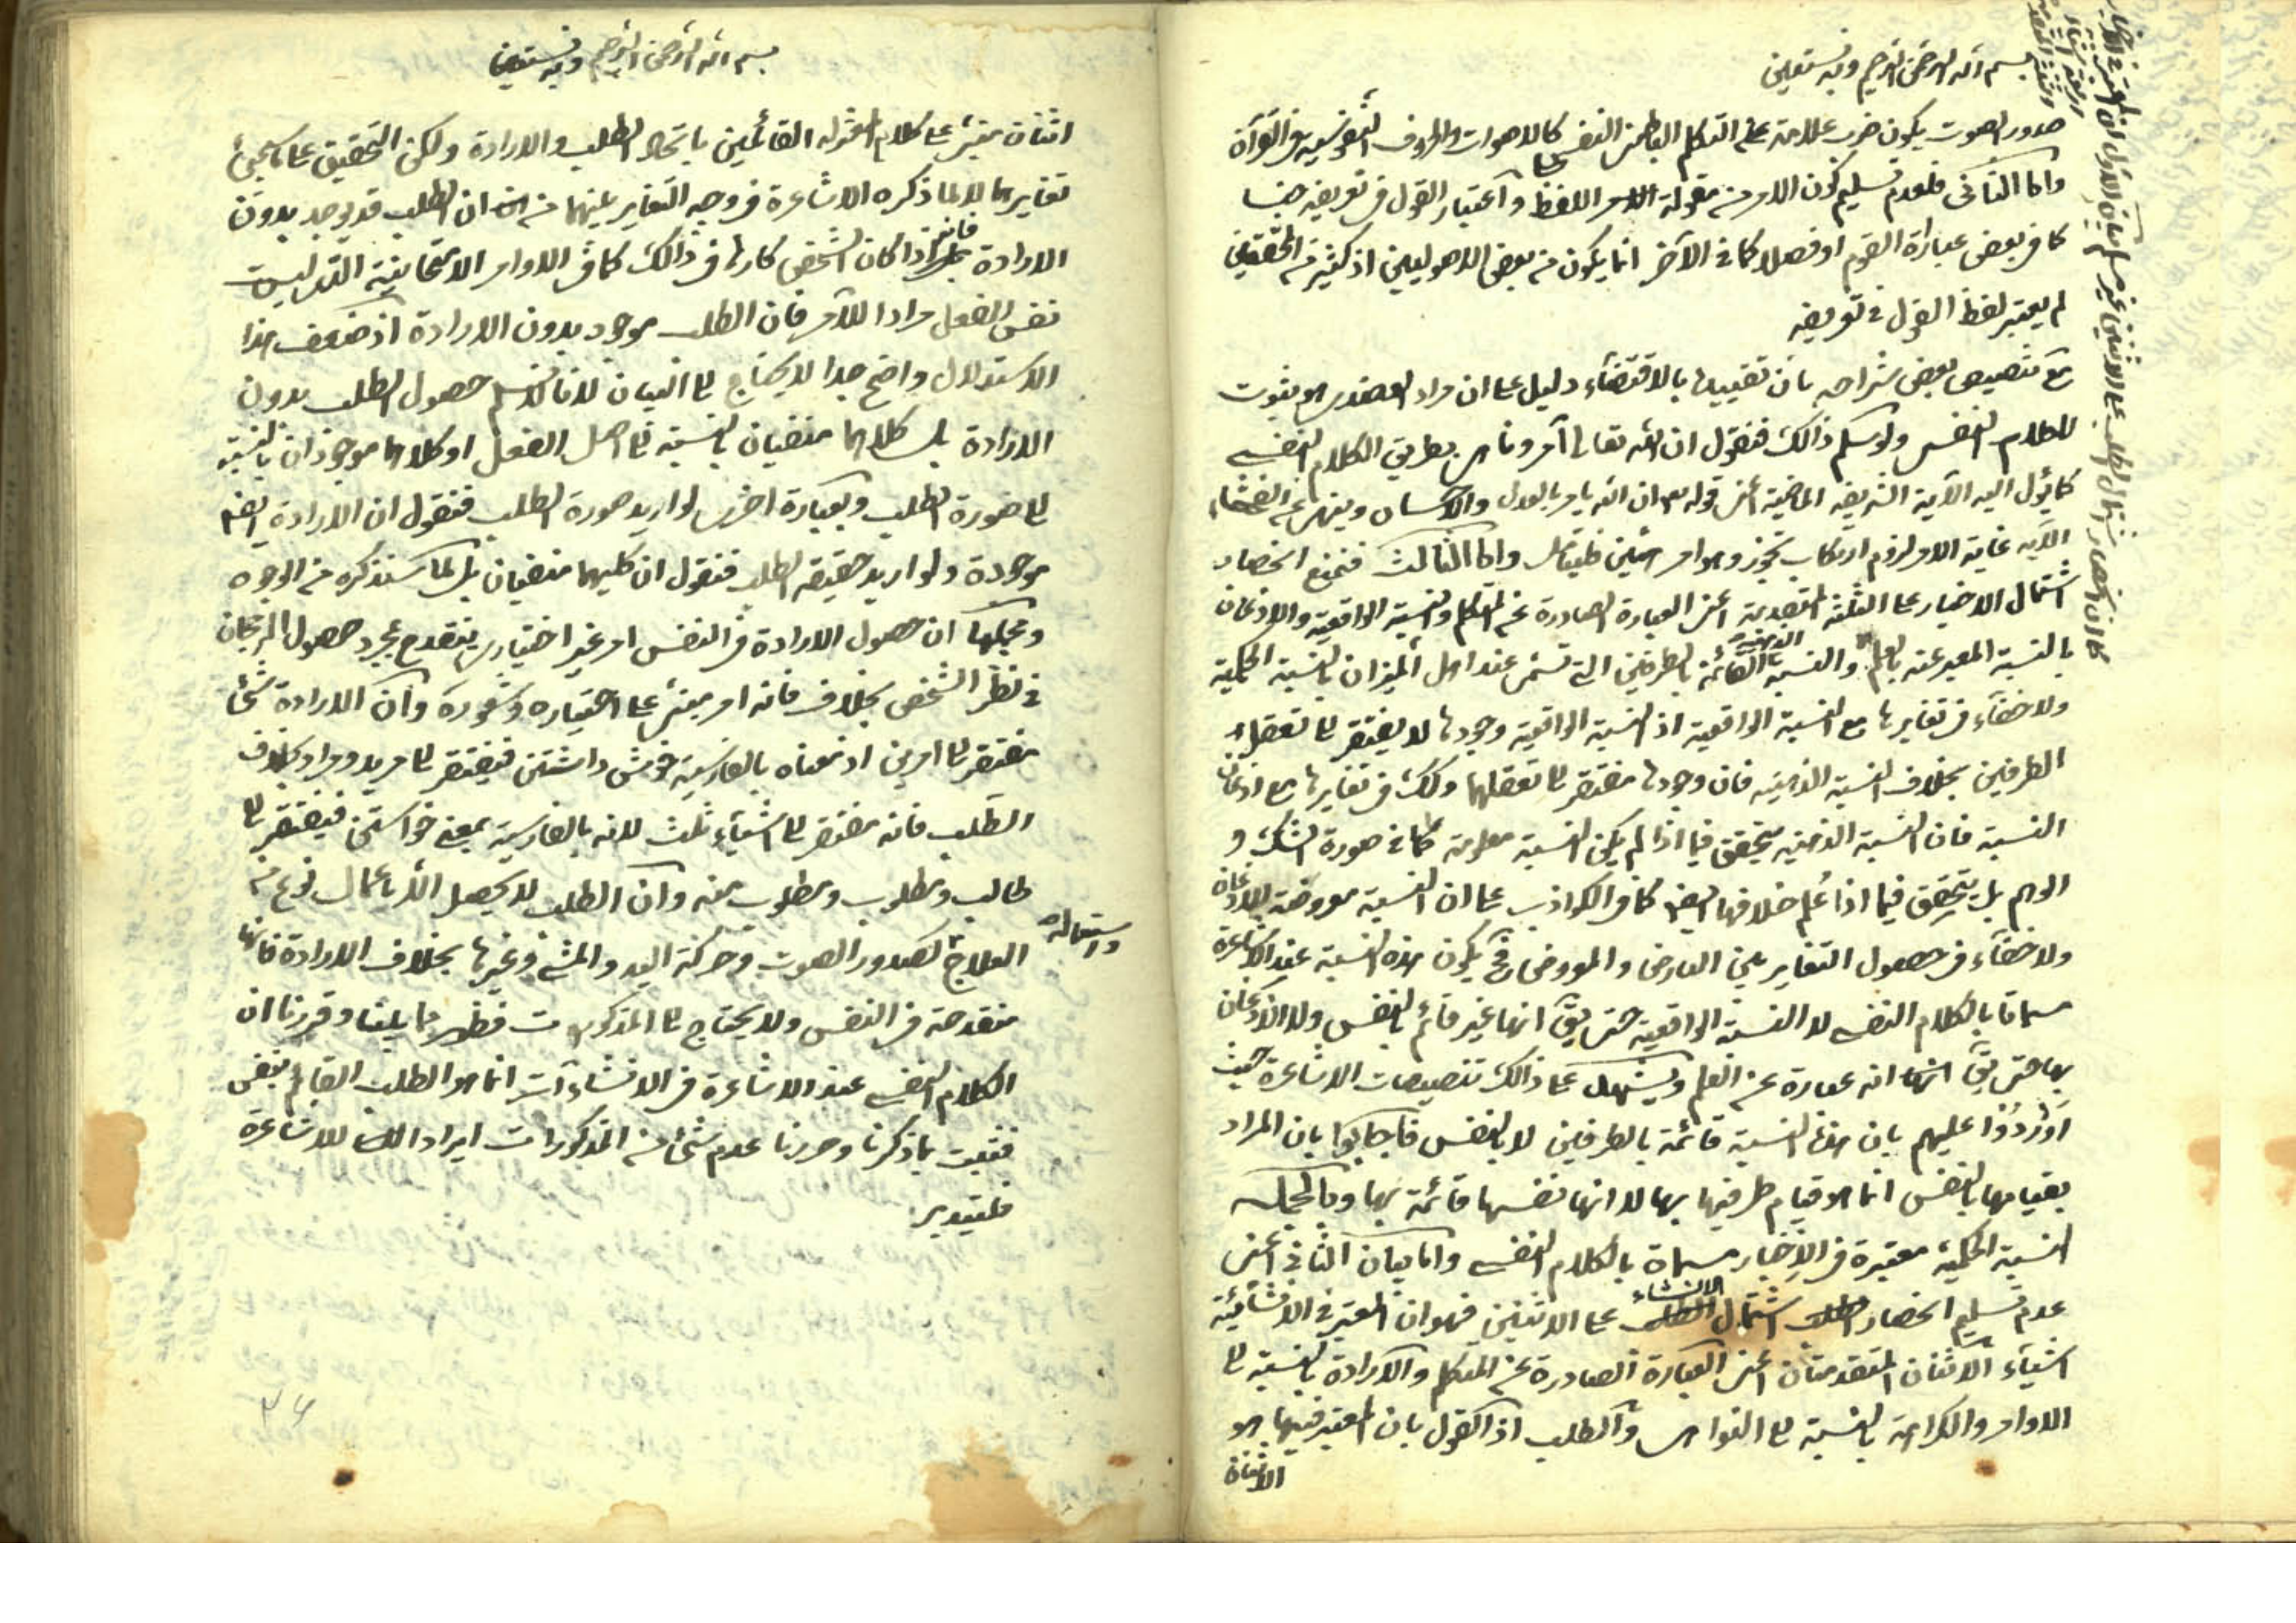 بسم الله الرحمن الرحيم وبه نستعين
صدور الصوت يكون ضرب علامة على التكلم الباطن النفسي كالاصوات والحروف
واما الثاني فلعدم تسليم كون الامر من مقولة اللفظ واعتبار القول في تعريفه جنسا
كما في بعض عبارة القوم او فصلا كما في الآخر انما يكون من بعض الاصوليين اذ كثير من المحققين
لم يعتبر لفظ القول في تعريفه
مع تنصيص بعض شراحه بان تقييدها بالاقتضاء دليل على ان مراد العضدي هو ثبوت
الكلام النفسي ولو سلم ذالك فنقول ان الله تعالى آمر وناهي بطريق الكلام النفسي
كما يؤل اليه الآية الشريفة الماضية اعني قوله ان الله يامر بالعدل والاحسان وينهى عن الفحشاء
الآية غاية الامر لزوم ارتكاب تجوز وهو امر هين واما الثالث فنمنع انحصار
اشتمال الاخبار على الثلثة المتقدمة اعني العبارة الصادرة عن المتكلم والنسبة الواقعية والاذعان
بالنسبة المعبر عنه بالعلم والنسبة الذهنية القائمة بالطرفين التي تسمى عند اهل الميزان بالنسبة الحكمية
ولا خفاء في تغايرها مع النسبة الواقعية اذ النسبة الواقعية وجودها لا يفتقر الى تعقل
الطرفين بخلاف النسبة الذهنية فان وجودها مفتقر الى تعقلهما وكك في تغايرها مع اذعان
النسبة فان النسبة الذهنية تتحقق فيما اذا لم يكن النسبة معلومة كما في صورة الشك و
الوهم بل يتحقق فيما اذا علم خلافها ايضا كما في الكواذب على ان النسبة معروضة للاذعان
ولا خفاء في حصول التغاير بين العارض والمعروض فح يكون هذه النسبة عند الاشاعرة
مسماة بالكلام النفسي لا النسبة الواقعية حتى يق انها غير قائم بالنفس ولا الاذعان
بها حتى يق انه عبارة عن العلم ويشهد على ذالك تنصيصات الاشاعرة حيث
اوردوا عليهم بان هذه النسبة قائمة بالطرفين لا بالنفس فاجابوا بان المراد
بقيامها بالنفس انما هو قيام طرفيها بها لا انها نفسها قائمة بها وبالجملة
النسبة الحكمية معتبرة في الاخبار مسماة بالكلام النفسي واما بيان الثاني اعني
عدم تسليم انحصار اشتمال الانشاء على الاثنين فهو ان المعتبر في الانشائية
اشياء الاثنان المتقدمتان اعني العبارة الصادرة عن المتكلم والارادة بالنسبة الى
الاوامر والكراهة بالنسبة الى النواهي والطلب اذ القول بان المعتبر فيها هو
الاثنان
بسم الله الرحمن الرحيم وبه نستعين
اثنان مبني على كلام المعتزلة القائلين باتحاد الطلب والارادة ولكن التحقيق على ما سيجئ
تغايرهما لا لما ذكره الاشاعرة في وجه التغاير بينهما من ان الطلب قد يوجد بدون
الارادة فانه اذا كان الشخص كارها في ذالك كما في الاوامر الامتحانية التي ليست
نفس الفعل مرادا للآمر فان الطلب موجود بدون الارادة اذ ضعف هذا
الاستدلال واضح جدا لا يحتاج الى البيان لانا لا نسلم حصول الطلب بدون
الارادة بل كلاهما منفيان بالنسبة الى اصل الفعل او كلاهما موجودان بالنسبة
الى صورة الطلب وبعبارة اخرى لو اريد صورة الطلب فنقول ان الارادة ايضا
موجودة ولو اريد حقيقة الطلب فنقول ان كليهما منفيان بل لما سنذكره من الوجوه
ومجملها ان حصول الارادة في النفس امر غير اختياري ينقدح بمجرد حصول الرجحان
في نظر الشخص بخلاف فانه امر مبني على اختياره وشعوره وان الارادة شئ
مفتقر الى امرين اذ معناه بالفارسية خوش داشتن فيفتقر الى مريد ومراد بخلاف
الطلب فانه مفتقر الى اشياء ثلث لانه بالفارسية بمعنى خواستن فيفتقر الى
طالب ومطلوب ومطلوب منه وان الطلب لا يحصل الا باعمال نوع من
العلاج واستعماله كصدور الصوت وحركة اليد والمشي وغيرها بخلاف الارادة فانها
منقدحة في النفس ولا يحتاج الى المذكورات فظهر مما بينا وقررنا ان
الكلام النفسي عند الاشاعرة في الانشاءآت انما هو الطلب القائم بنفس
فثبت بما ذكرنا وحررنا عدم شئ من المذكورات ايرادا للاشاعرة
فليتدبر